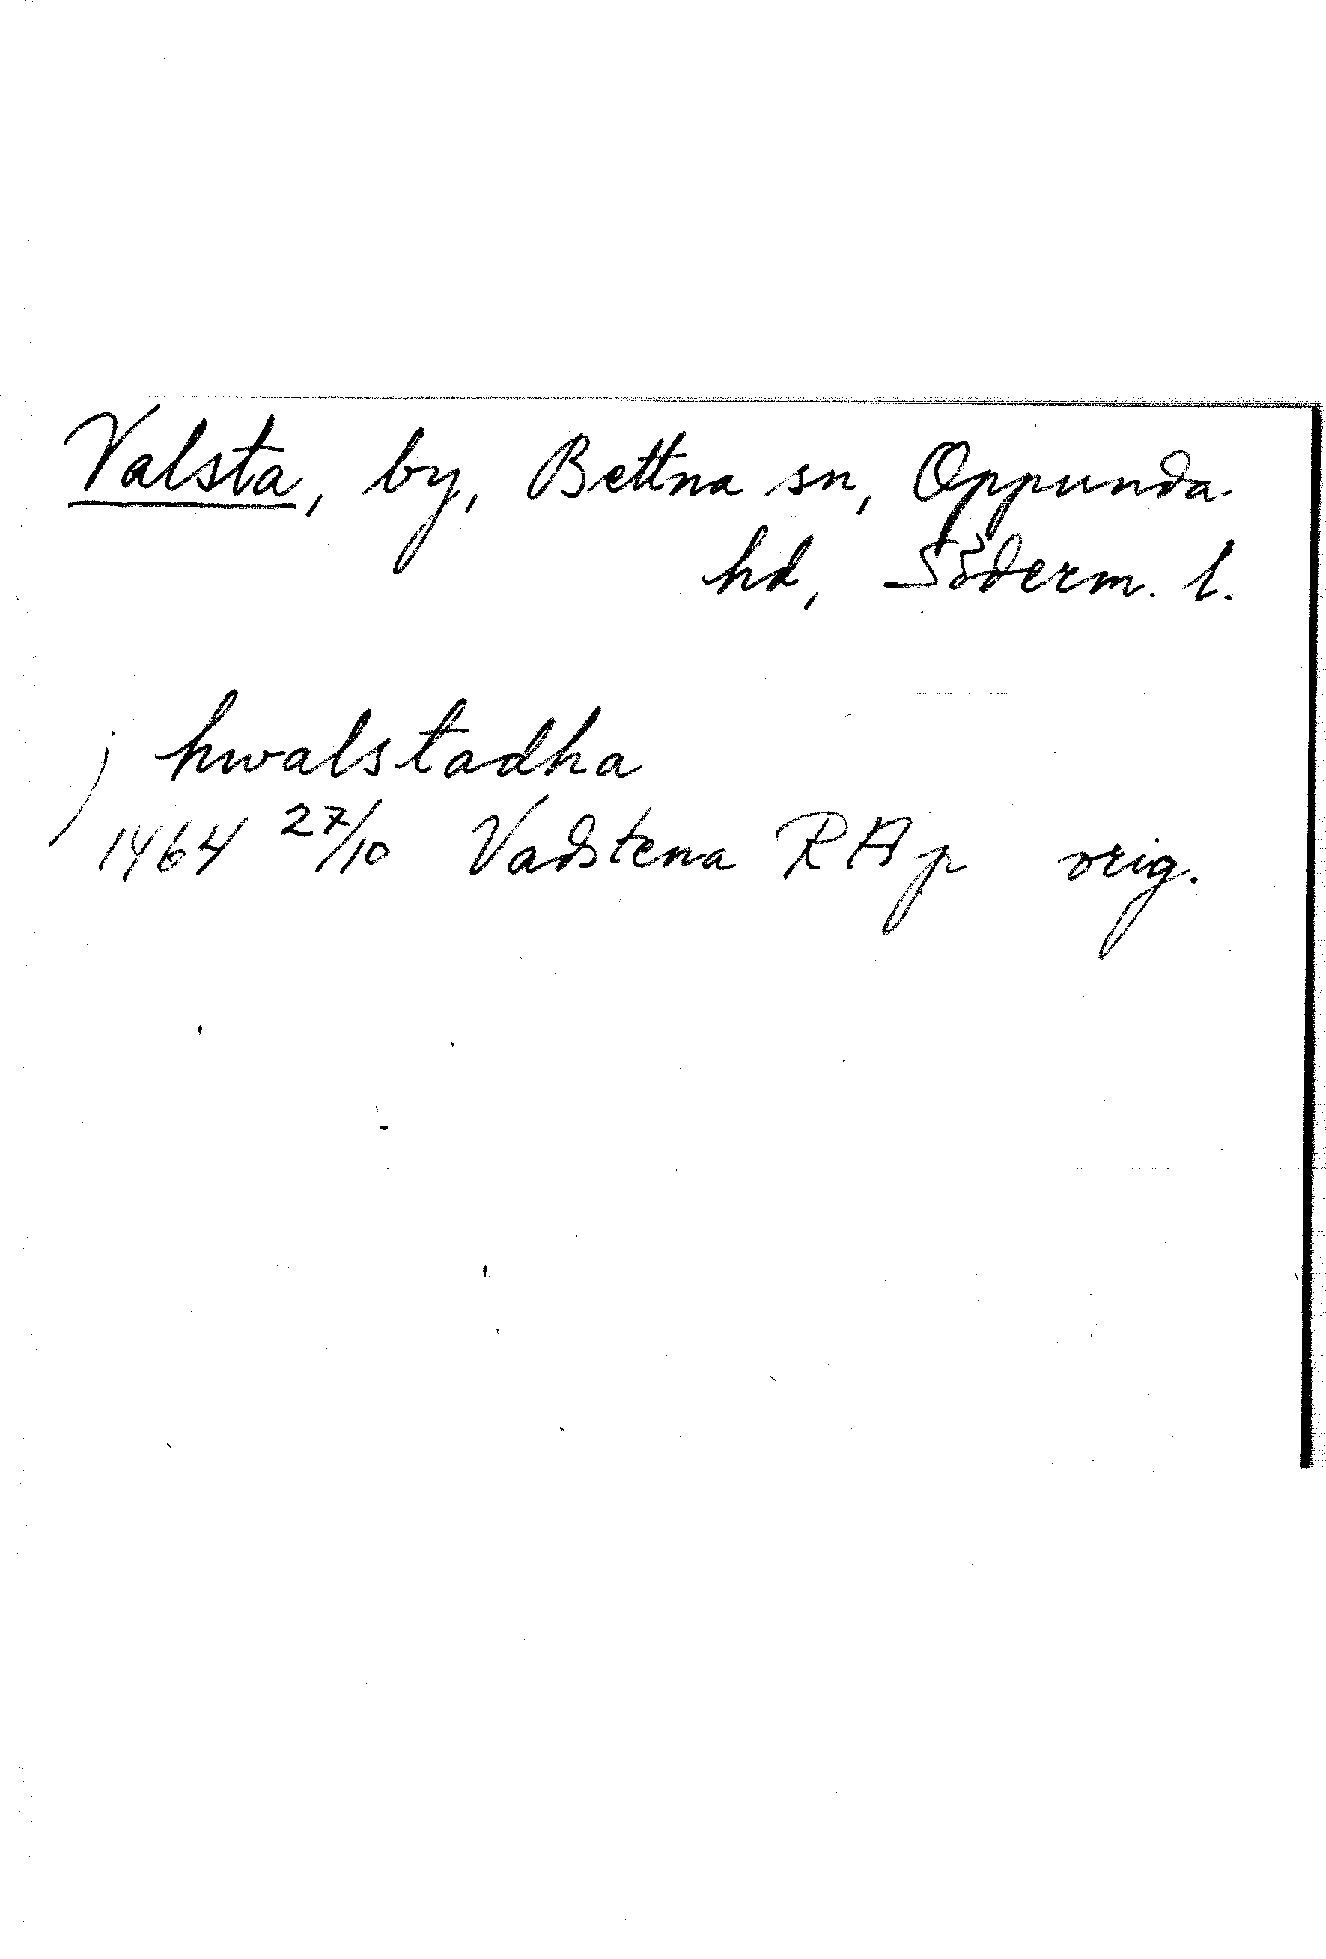 Valsta, by, Bettna sn, Oppunda
hd, Söderm. l.
j hwalstadha
1464 27/10 Vadstena RAp orig.